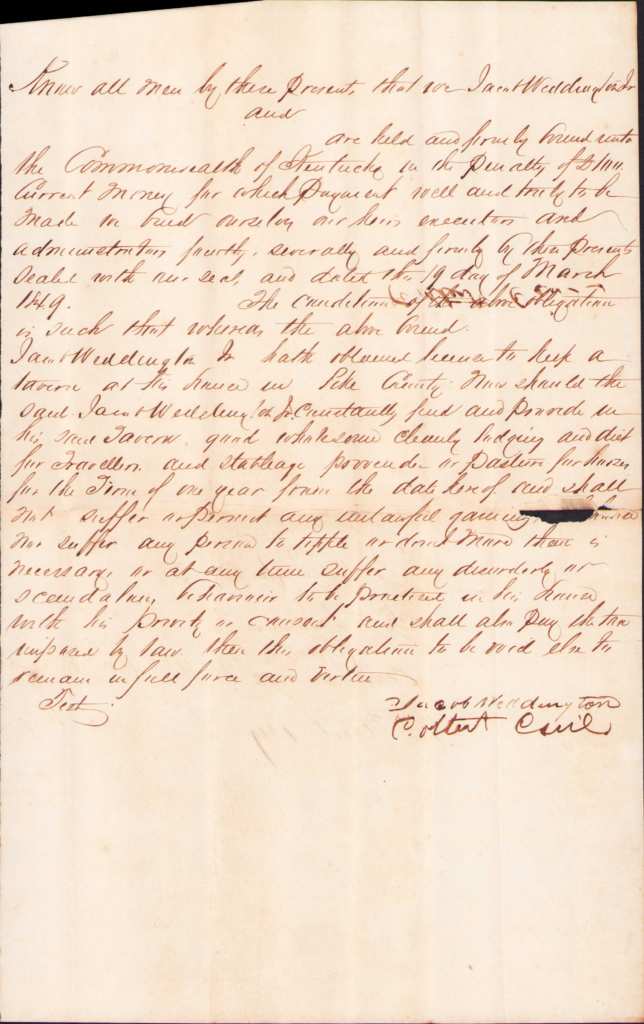 Know all men by these Presents that we Jacob Weddington Jr
and
are held and firmly bound unto
the Commonwealth of Kentucky in the Penalty of
Current Money for which Payment well and truly to be
made we bind ourselves our heirs executors and
administrators jointly, severally and firmly by these Presents
sealed with our seals and dated this 19 day of March
1849. The condition of the above obligation
is such that whereas the above bound
Jacob Weddington Jr hath obtained license to keep a
tavern at his house in Pike County Now should the
said Jacob Weddington Jr Constantly find and provide in
his said Tavern good wholesome cleanly lodging and diet
for Travellers and stableage provender or pasture for horses
for the Term of one year from the date hereof and shall
not suffer or permit any unlawful gaming house
nor suffer any person to tipple or drink more than is
necessary, or at any time suffer any disorderly or
scandalous behaviour to be practised in his house
with his privity or consent and shall also pay the tax
imposed by law then this obligation to be void else to
remain in full force and virtue
Test.
Jacob Weddington
Colbert Cecil